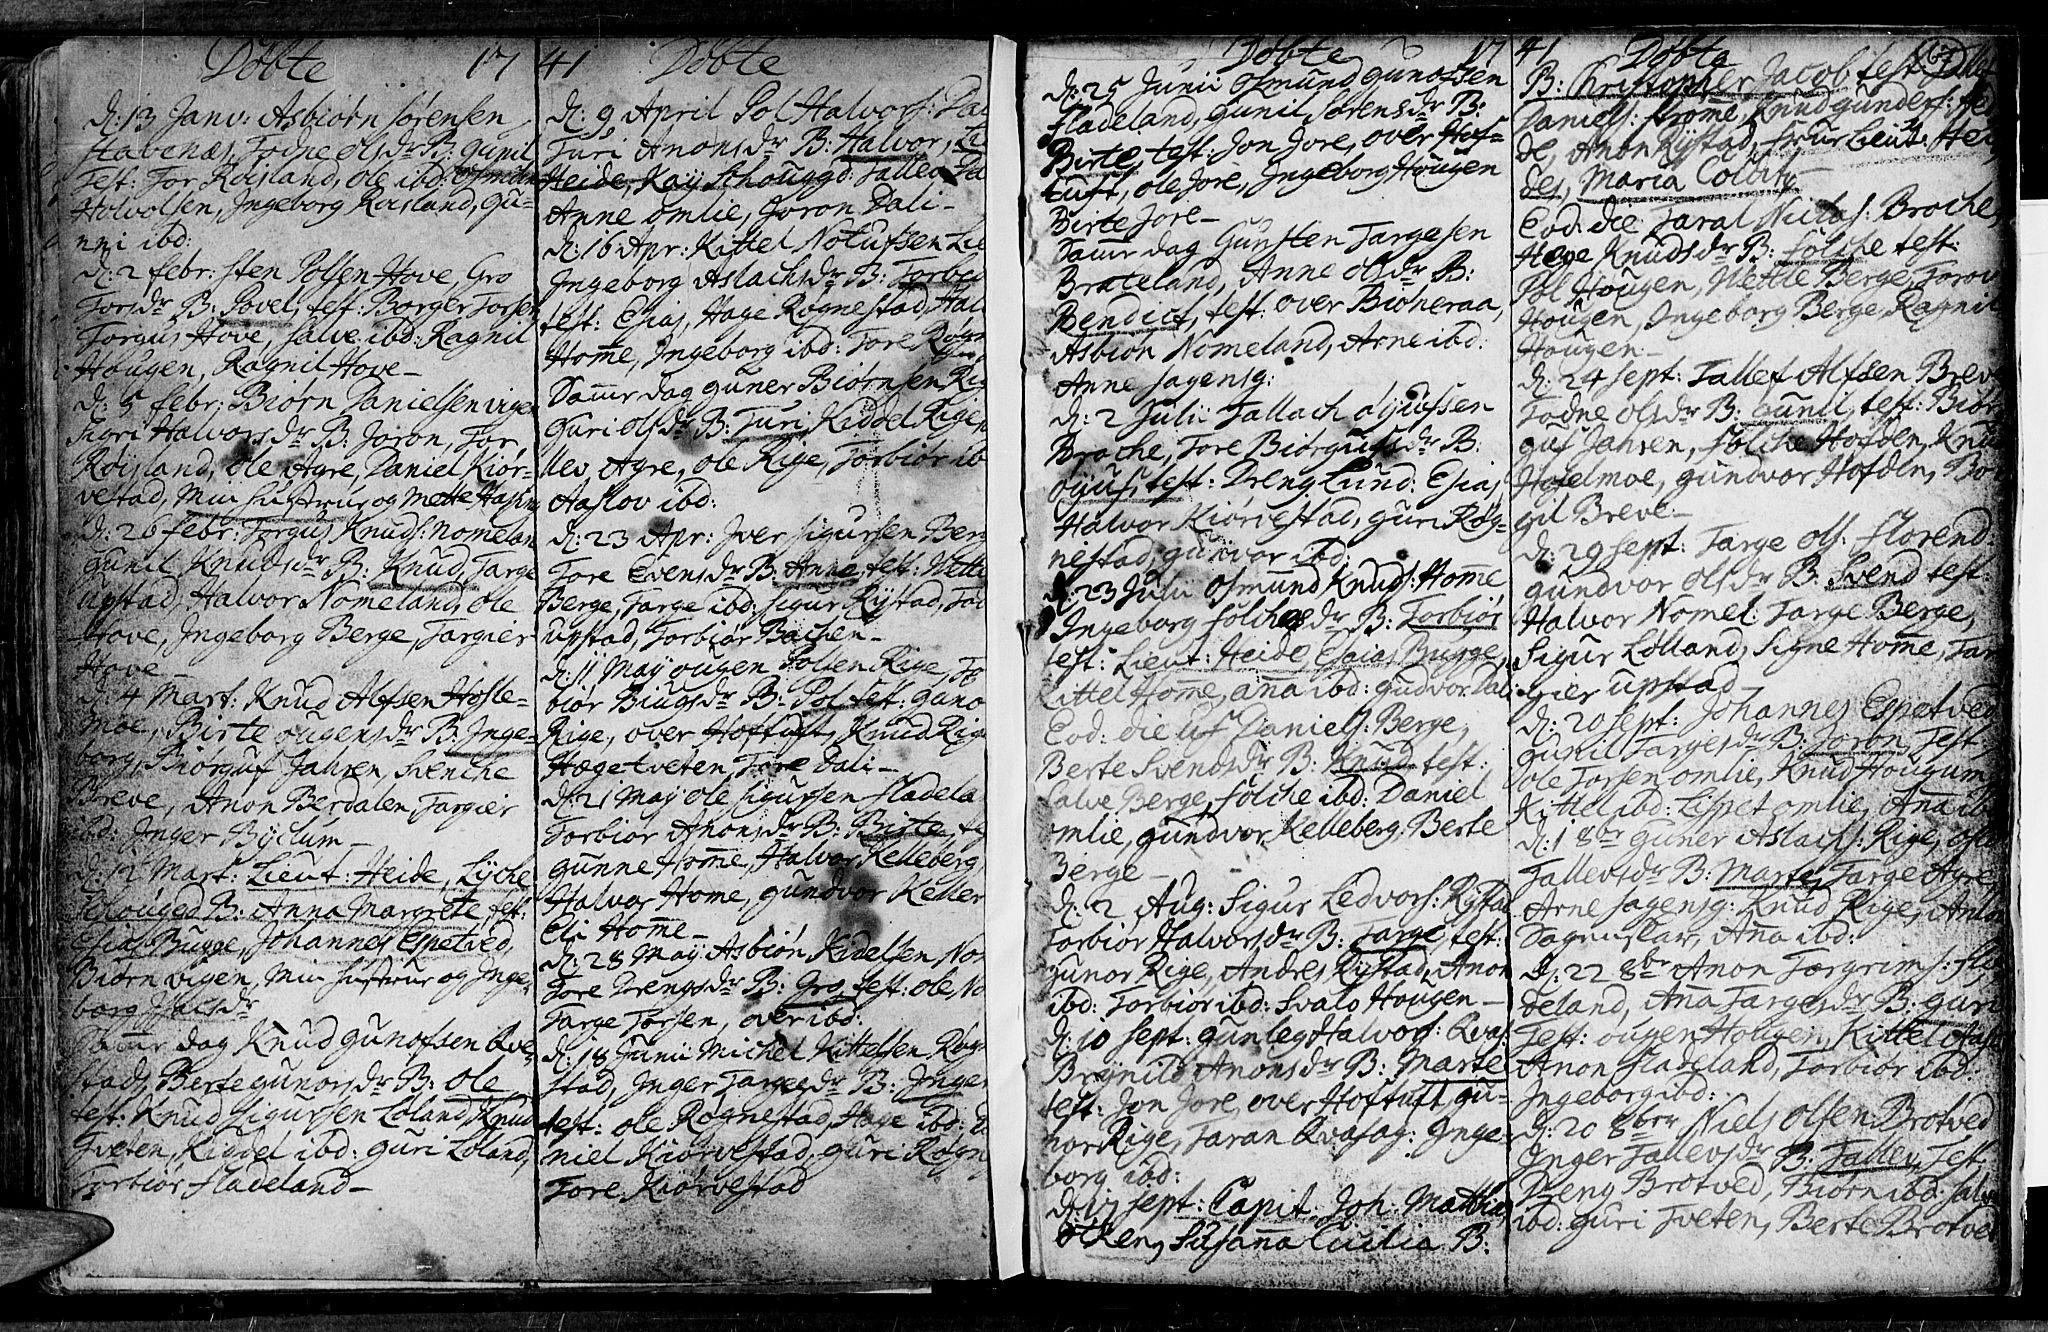 Døbte 17
d: 13 Janv: Asbiørn Sørensen
Stavenæs, Todne olsdr B: Gunil
Test: Tor Røisland, Ole ibd: Osmun
Halvolsen, Ingeborg Røisland, Gu-
nni ibd:
d: 2 febr: Sten Polsen Hove, Gro
Torsdr B: Povel, test: Borger Torsen
Torgus Hove, Salve ibd: Ragnil
Hougen, Ragnil Hove-
d: 5 febr: Biørn Danielsen Vigen
Sigri Halvorsdr B: Joron, Tor
Røisland, Ole Agre, Daniel Kiør-
vestad, Min Hustrue og Mette
d: 26 febr: Torgus Knuds: Nomelan
Gunil Knudsdr B: Knud, Targe
Upstad, Halvor Nomeland, Ole
Hove, Ingeborg Berge, Targier
Hove-
d: 4 Mart: Knud Alfsen Hosle-
moe, Birte Ougensdr B: Inge-
borg, Biørguf Jahren, Svenche
Breve, Anon Berdalen, Targier
ibd: Inger Byclum-
d: 12 Mart: Lieut: Heide, Lyche
Schouged B: Anna Margrete, test:
Esias Bugge, Johannes Espetved,
Biørn Vigen, Min Hustrue og Inge-
borg
Samr dag Knud Gunofsen Rve-
stad, Berte Gunorsdr B: Ole
test: Knud Sigursen Loland, Knud
Tveten, Kiddel ibd: Guri Loland,
Torbiør Fladeland-
41 Døbte
d: 9 April Pol Halvors: Dal
Turi Anonsdr B: Halvor,
Heide, Kay Schouggd: Tallev Da
Anne Omlie, Joron Dali-
d: 16 Apr: Kittel Notufsen Lie
Ingeborg Aslachsdr B: Torbiø
test: Esias, Hage Rognestad, Hal
Homme, Ingeborg ibd: Tore Rogn
Samr dag Guner Biørnsen Rig
Guri Olsdr B: Turi, Kiddel Rige
llev Agre, Ole Rige, Torbiør ib
Aaslov ibd:
d: 23 Apr: Iver Sigursen Berg
Tore Evensdr B: Anne, test: Mette
Berge, Targe ibd: Sigur Rystad, Tol
Upstad, Torbiør Bachen-
d: 11 May Ougen Polsen Rige, To
biør Biugsdr B: Pol test: Guno
Rige, Over Hoftuft, Knud Rig
Hæge Tveten, Tore Dali-
d: 21 May Ole Sigursen Fladela
Torbiør Anonsdr B: Birte te
Gunne Home, Halvor Kelleberg
Halvor Home, Gundvor Keller
Eli Home-
d: 28 May Asbiørn Kidelsen Nor
Tore Drengsdr B: Gro, test: Ole No
Targe Torsen, Over ibd:
d: 18 Junii Michel Kittelsen Rogn
stad, Inger Targesdr B: Inger
test: Ole Rognestad, Hage ibd: D
niel Kiørvestad, Guri Rogn
Tore Kiørvestad
Døbte 17
d: 25 Junii Osmund Gunofsen
Fladeland, Gunil Sorensdr B:
Birte, test: Jon Jore, Over Hof-
tuft, Ole Jore, Ingeborg Hougen
Birte Jore-
Samr dag Gunsten Targesen
Brateland, Anne Olsdr B:
Bendict, test: Over Biørneraa,
Asbiøn Nomeland, Arne ibd:
Anne Sagensg:
d: 2 Julii Tallach Oyufsen
Broche, Tore Biørgufsdr B:
Oyus, test: Dreng Lund: Esias,
Halvor Kiørvestad, Guri Røg-
nestad, Gunvor ibd:
d: 23 Julii Osmund Knuds: Home
Ingeborg Folchesdr B: Torbiør
test: Lieut: Heide, Esias Bugge,
Kittel Home, Ana ibd: Gudvor Dali
Eod: die Uf Daniels: Berge,
Berte Svendsdr B: Knud test:
Salve Berge, Folche ibd: Daniel
Omlie, Gundvor Kelleberg, Berte
Berge-
d: 2 Aug: Sigur Ledvors: Rystad
Torbiør Halvorsdr B: Targe test:
Gunor Rige, Andres Rystad, Anon
ibd: Torbiør ibd: Svalo Hougen-
d: 10 Sept: Gunleg Halvors: Qvas
Brynild Anonsdr B: Marte
test: Jon Jore, Over Hoftuft Gu-
nor Rige, Taran Qvasag: Inge-
borg ibd:
d: 17 Sept: Capit. Joh: Matthias
Susana Cecilia B:
41 Døbte
B: Kristopher Jacob test:
Daniels: Frome, Knud Gunders: Hei
de, Anon Rystad, Frue Lieut: Hei-
des, Maria Colbiø
Eod: die Taral Niclas: Broche,
Hege Knudsdr B: Folche test:
Pol Hougen, Mette Berge, Torov
Hougen, Ingeborg Berge, Ragnil
Hougen-
d: 24 Sept: Tallef Alfsen Breve
Todne Olsdr B: Gunil, test: Biør
guf Jahren, Folche Hofden, Knud
Hoselmoe, Gundvor Hofden, Bor
gil Breve-
d: 29 Sept: Targe Ols: Florend:
Gundvor Olsdr B: Svend test:
Halvor Nomel: Targe Berge,
Sigur Lolland, Signe Home, Tar
gier Upstad-
d: 20 Sept: Johannes Espetved
Gunil Targesdr B: Joron, Test
Ole Torsen Omlie, Knud Hougum
Kittel ibd: Lispet Omlie, Ana ibd
d: 1 8br Guner Aslachs: Rige,
Tallevsdr B: Marte, Targe Agre,
Arne Sagensg: Knud Rige, Anlou
Sagneskar, Ana ibd:
d: 22 8br Anon Torgrims: Fla
deland, Ana Targesdr B: Guri
Test: Ougen Hougen, Kittel
Anon Fladeland, Torbiør ibd:
Ingeborg ibd:
d: 20 8br Niels Olsen Brotved
Inger Tallevsdr B: Tallev, Test
Dreng Brotved, Biørn ibd: Salve
ibd: Guri Tveten, Berte Brotved